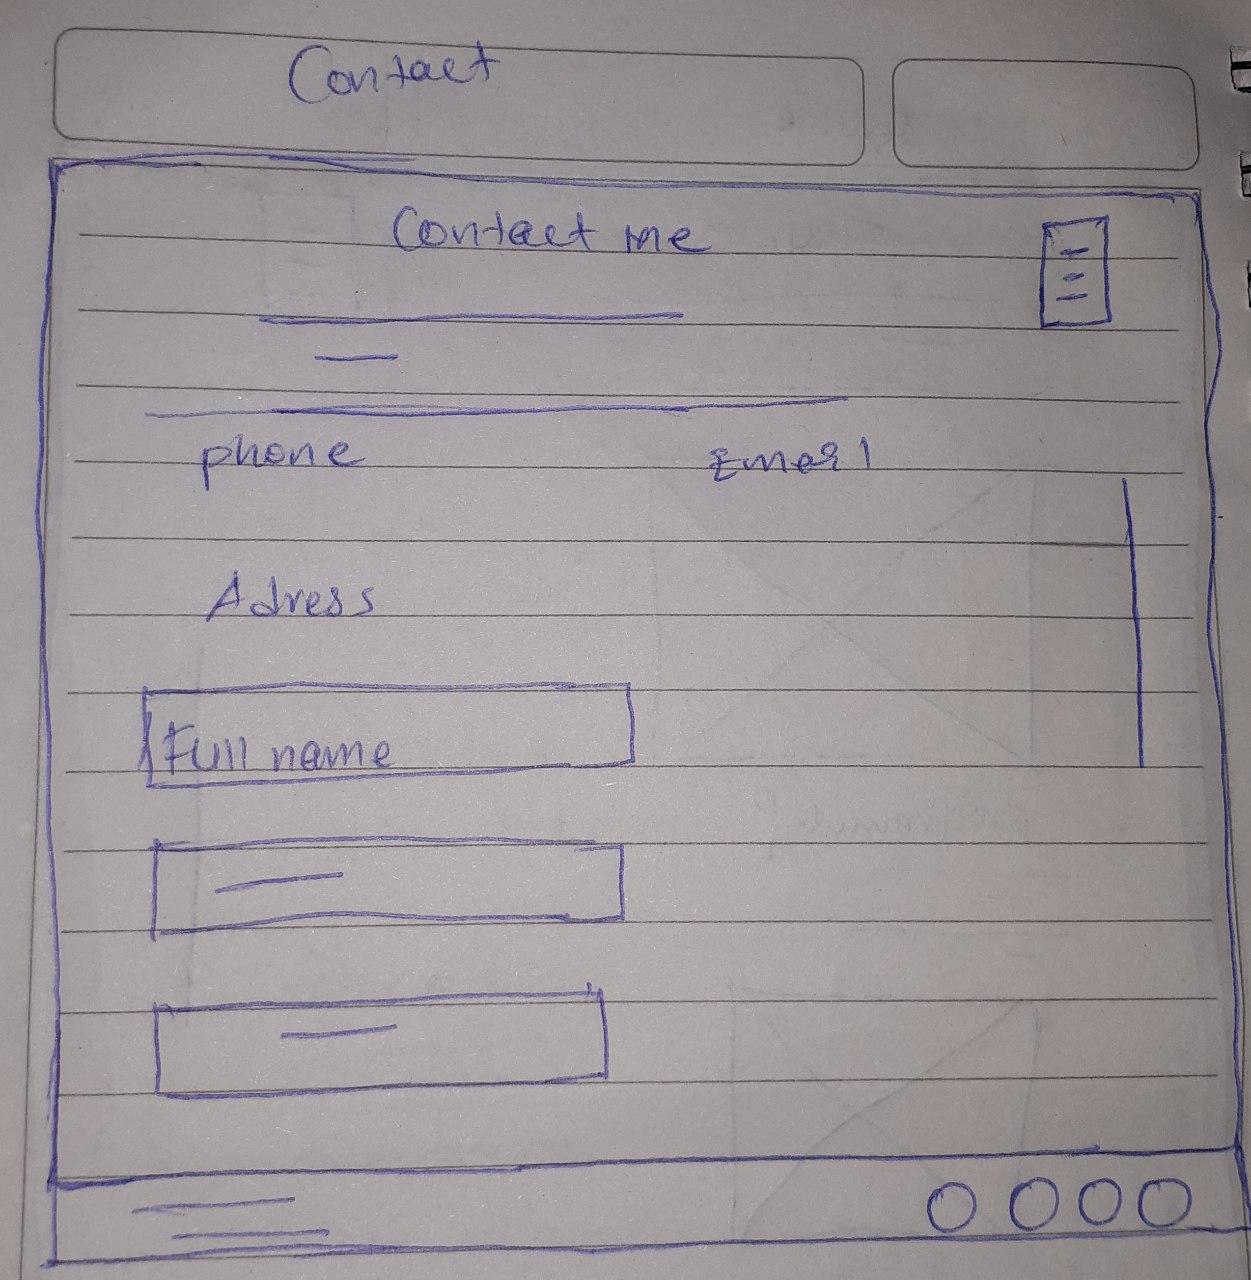 Contact
Contact me
phone Email
Adress
Full name